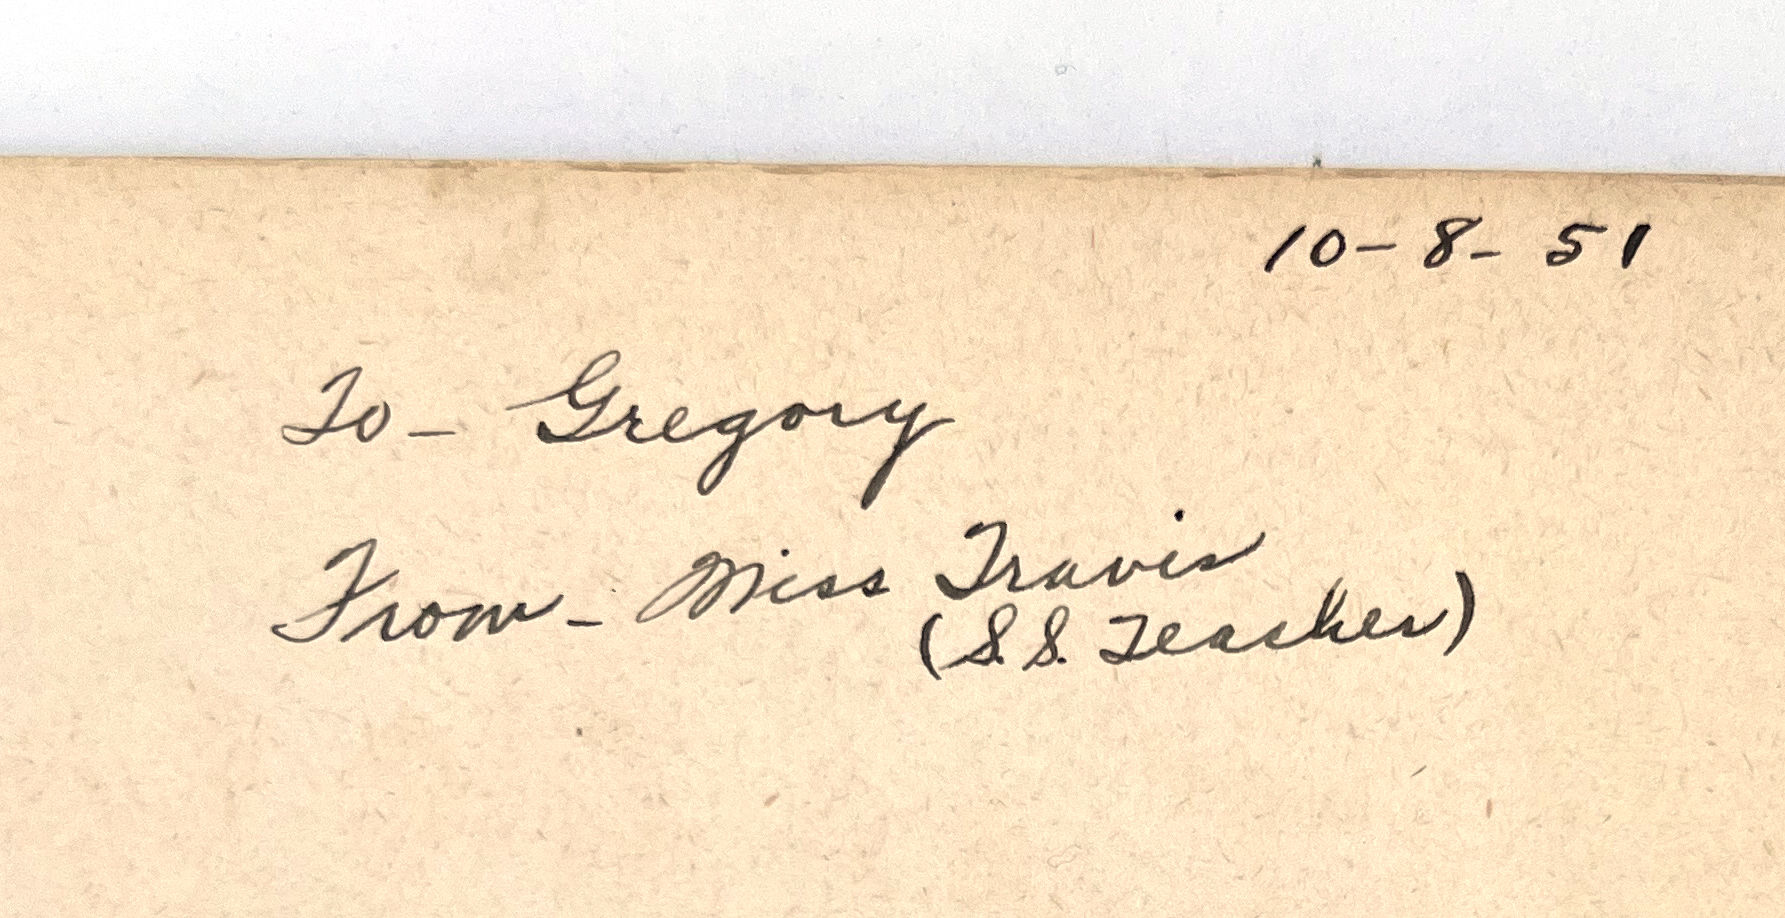 10-8-51
To- Gregory
From- Miss Travis
(S.S. Teacher)